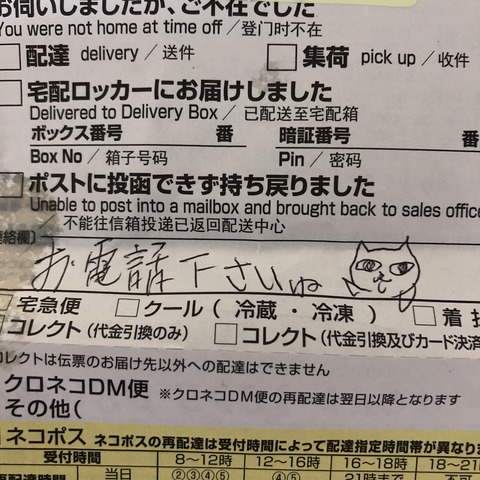 お伺いしましたが、ご不在でした
You were not home at time off / 登门时不在
配達 delivery / 送件 集荷 pick up / 收件
宅配ロッカーにお届けしました
Delivered to Delivery Box / 已配送至宅配箱
ボックス番号 番 暗証番号 番
Box No / 箱子号码 Pin / 密码
ポストに投函できず持ち戻りました
Unable to post into a mailbox and brought back to sales office
/ 不能往信箱投递已返回配送中心
連絡欄)
お電話下さいね
宅急便 クール ( 冷蔵 ・ 冷凍 ) 着払
コレクト (代金引換のみ) コレクト (代金引換及びカード決済
コレクトは伝票のお届け先以外への配達はできません
クロネコDM便 ※クロネコDM便の再配達は翌日以降となります
その他(
ネコポス ネコポスの再配達は受付時間によって配達指定時間帯が異なりま
受付時間 8~12時 12~16時 16~18時 18~21
再配達時間 当日 ②③④⑤ ④⑤ 21時まで 不可